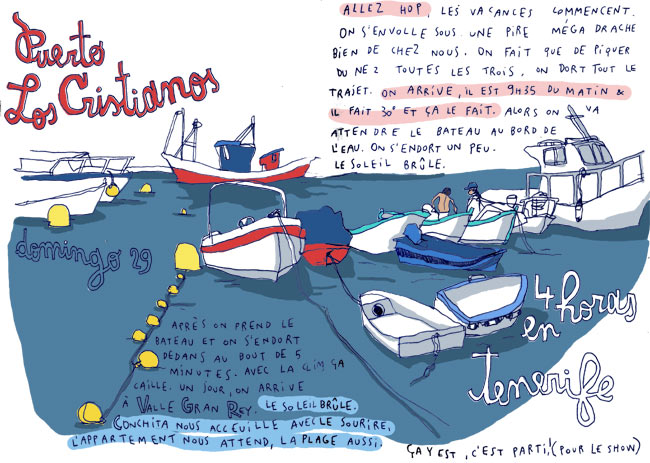 Puerto
Los Cristianos
ALLEZ HOP, LES VACANCES COMMENCENT.
ON S'ENVOLLE SOUS UNE PIRE MÉGA DRACHE
BIEN DE CHEZ NOUS. ON FAIT QUE DE PIQUER
DU NEZ TOUTES LES TROIS, ON DORT TOUT LE
TRAJET. ON ARRIVE, IL EST 9H35 DU MATIN &
IL FAIT 30° ET ÇA LE FAIT. ALORS ON VA
ATTENDRE LE BATEAU AU BORD DE
L'EAU. ON S'ENDORT UN PEU.
LE SOLEIL BRÛLE.
domingo 29
4 horas
en
tenerife
APRÈS ON PREND LE
BATEAU ET ON S'ENDORT
DEDANS AU BOUT DE 5
MINUTES. AVEC LA CLIM ÇA
CAILLE. UN JOUR, ON ARRIVE
À VALLE GRAN REY. LE SOLEIL BRÛLE.
CONCHITA NOUS ACCEUILLE AVEC LE SOURIRE,
L'APPARTEMENT NOUS ATTEND, LA PLAGE AUSSI.
ÇA Y EST, C'EST PARTI! (POUR LE SHOW)